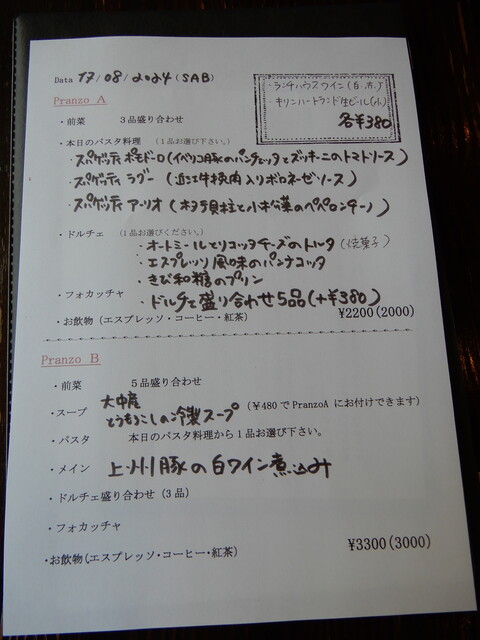 Data 17/08/2024 (SAB)
・ランチハウスワイン(白.赤.)
・キリンハートランド生ビール(小)
各¥380
Pranzo A
・前菜 3品盛り合わせ
・本日のパスタ料理 (1品お選び下さい。)
・スパゲッティ ポモドーロ(イベリコ豚のパンチェッタとズッキーニのトマトソース)
・スパゲッティ ラグー (近江牛挽肉入りボロネーゼソース)
・スパゲッティ アーリオ (ホタテ貝柱と小松菜のペペロンチーノ)
・ドルチェ (1品お選びください。)
・オートミールとリコッタチーズのトルタ(焼菓子)
・エスプレッソ風味のパンナコッタ
・きび和糖のプリン
・フォカッチャ ・ドルチェ盛り合わせ5品(+¥380)
・お飲物(エスプレッソ・コーヒー・紅茶) ¥2200(2000)
Pranzo B
・前菜 5品盛り合わせ
・スープ 大中産とうもろこしの冷製スープ (¥480でPranzoA にお付けできます)
・パスタ 本日のパスタ料理から1品お選び下さい。
・メイン 上州豚の白ワイン煮込み
・ドルチェ盛り合わせ(3品)
・フォカッチャ
・お飲物(エスプレッソ・コーヒー・紅茶) ¥3300(3000)